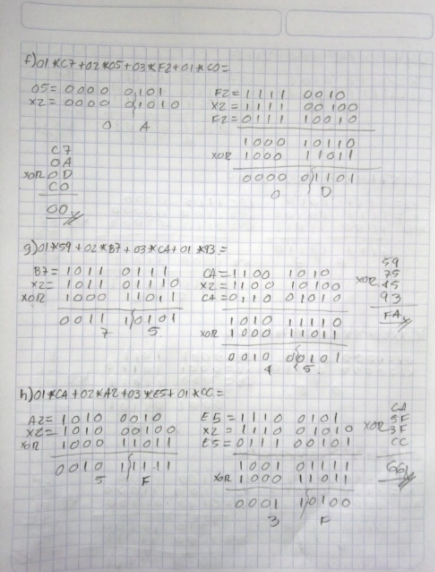 f) 01*C7+02*05+03*F2+01*C0=
05= 0000 0101
X2= 0000 01010
0 A
C7
0A
XOR 0D
C0
00
F2= 1111 0010
X2= 1111 00100
F2= 0111 10010
1000 10110
XOR 1000 11011
0000 01101
0 D
g) 01*59+02*B7+03*CA+01*93=
B7= 1011 0111
X2= 1011 01110
XOR 1000 11011
0011 10101
7 5
CA= 1100 1010
X2= 1100 10100
CA= 0110 01010
1010 11110
XOR 1000 11011
0010 00101
4 5
59
75
XOR 45
93
FA
h) 01*CA+02*A2+03*E5+01*CC=
A2= 1010 0010
X2= 1010 00100
XOR 1000 11011
0010 11111
5 F
E5= 1110 0101
X2= 1110 01010
E5= 0111 00101
1001 01111
XOR 1000 11011
0001 10100
3 F
CA
5F
XOR 3F
CC
66